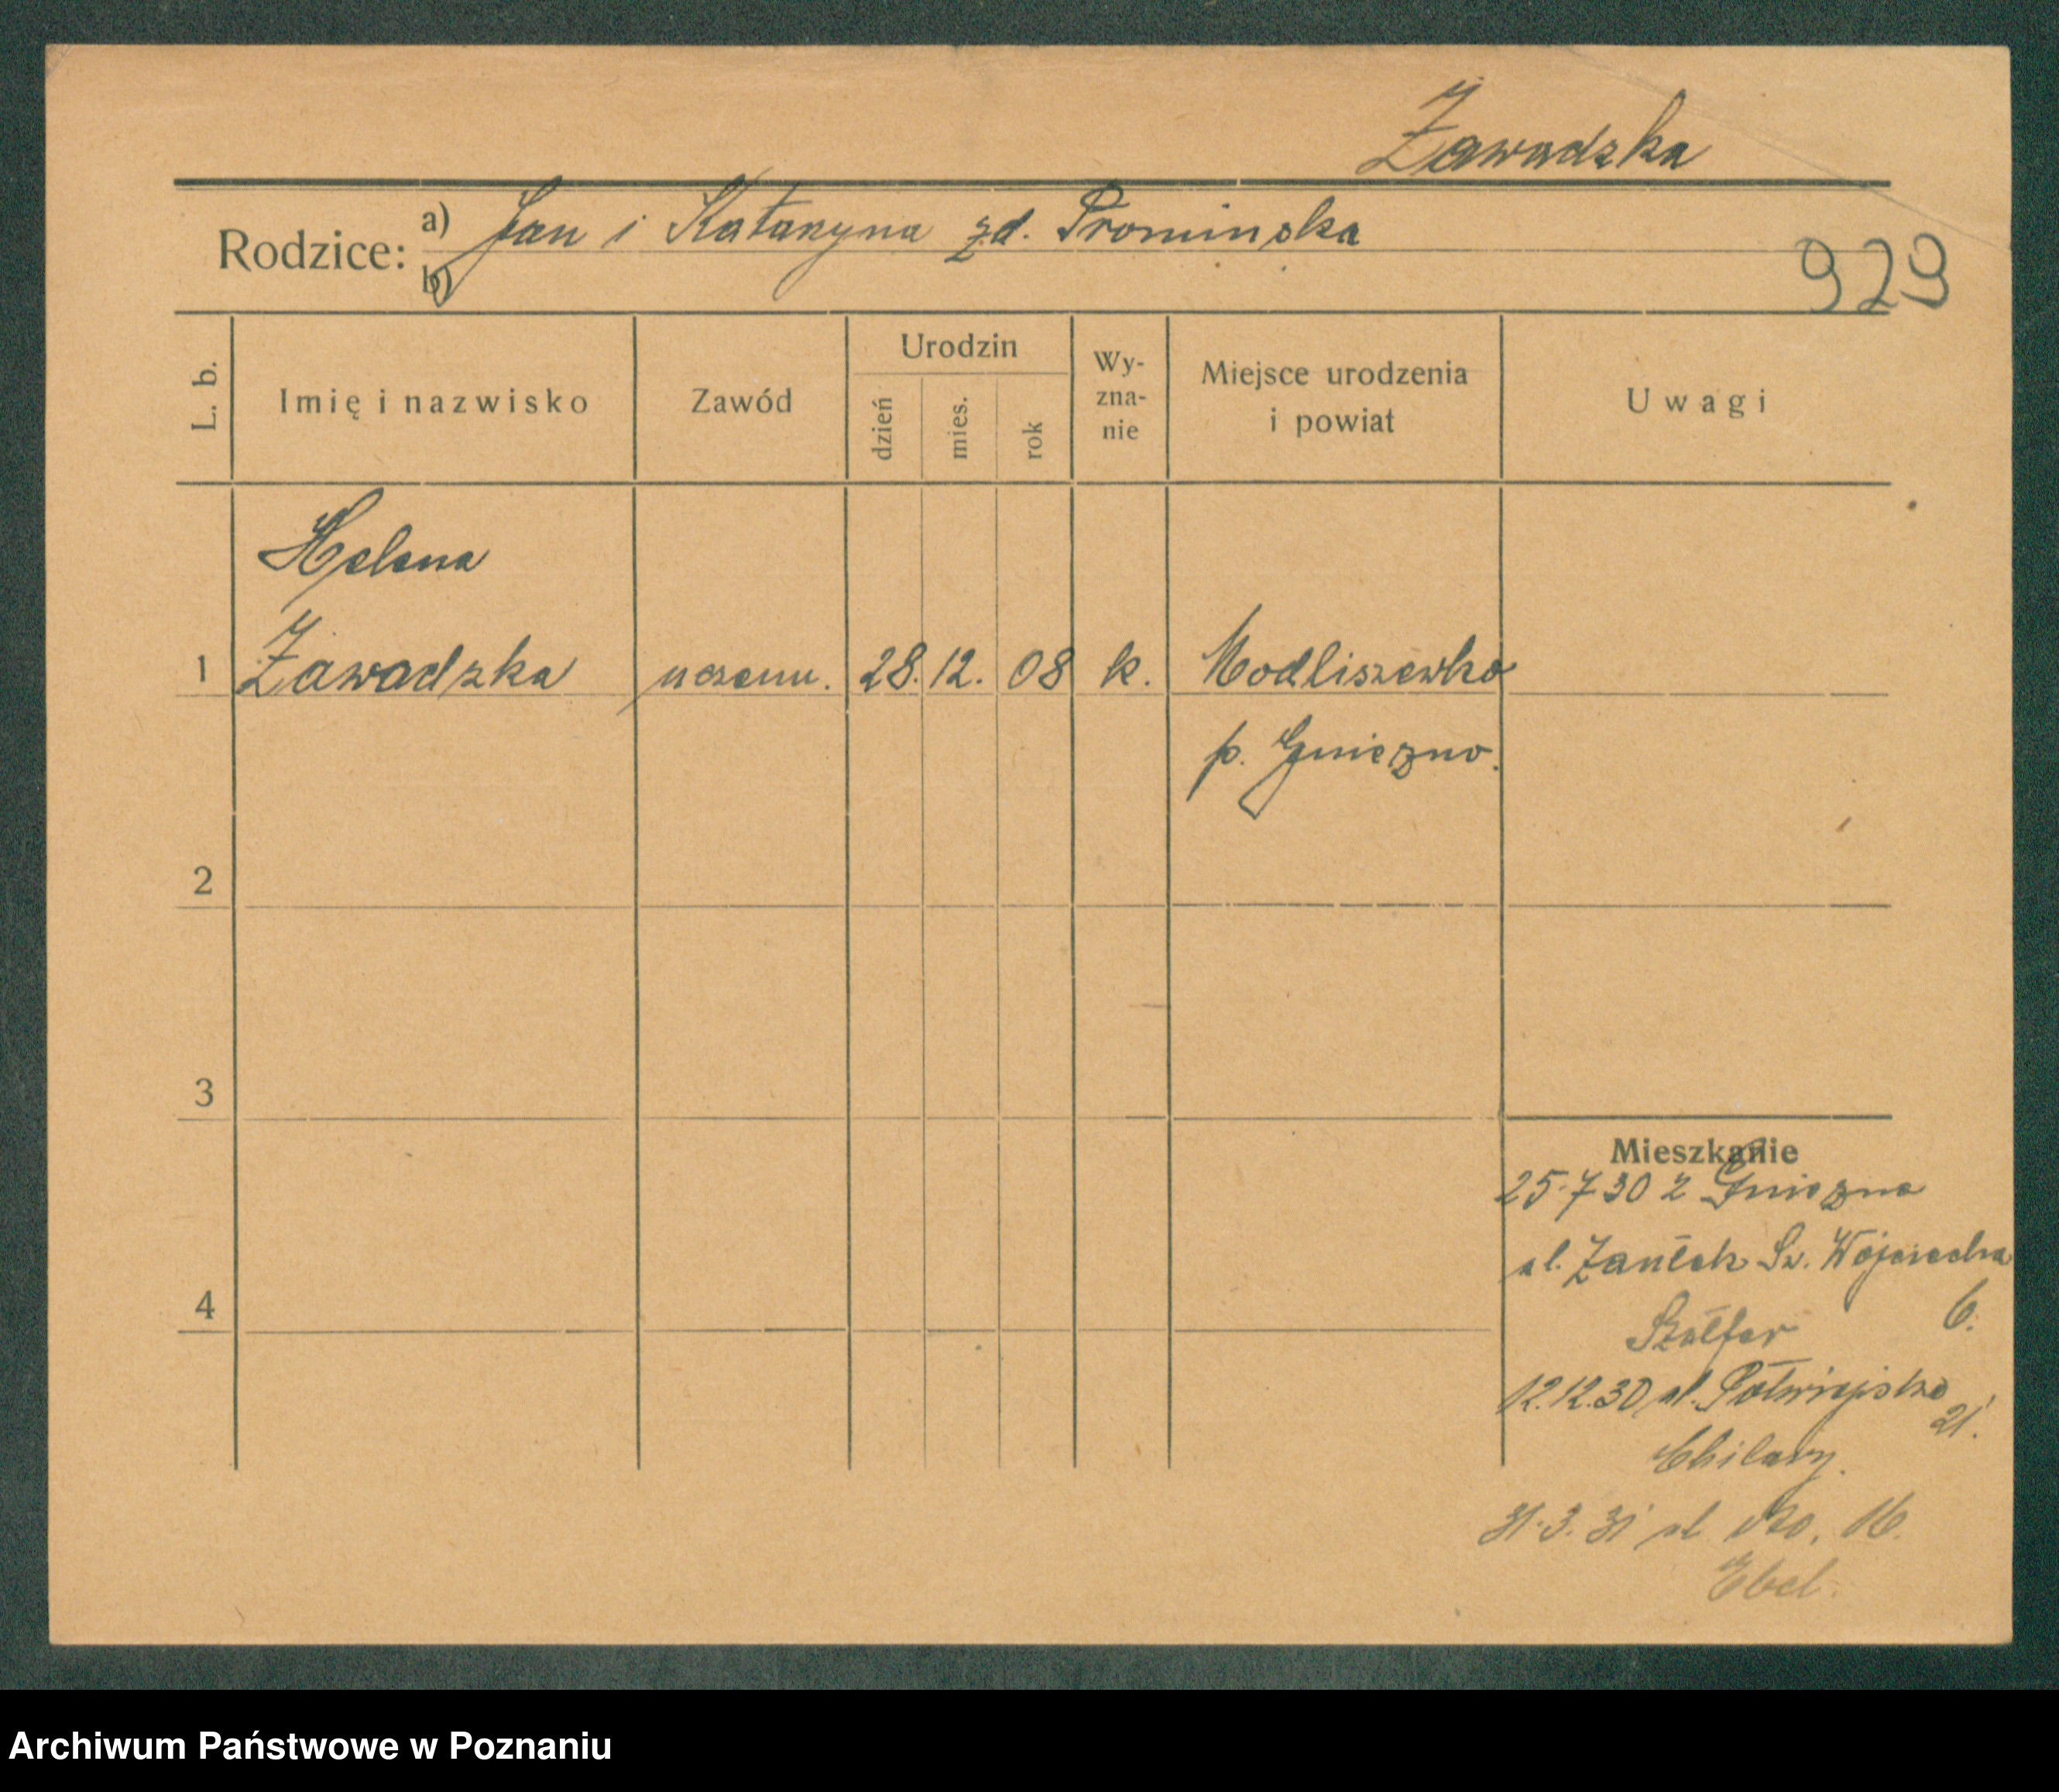 Zawadzka
Rodzice: a) Jan i Katarzyna zd. Prominska
b)
929
L. b.
Imię i nazwisko
Zawód
Urodzin
dzień
mies.
rok
Wy-
zna-
nie
Miejsce urodzenia
i powiat
Uwagi
Helena
1 Zawadzka uczenn. 28. 12. 08 k. Modliszewko
p. Gniezno.
2
3
4
Mieszkanie
25.7.30 z Gniezna
ul. Zaułek Św. Wojciecha
6.
12.12.30 ul. Półwiejska
21.
31.3.31 ul. 16.
Ebel.
Archiwum Państwowe w Poznaniu